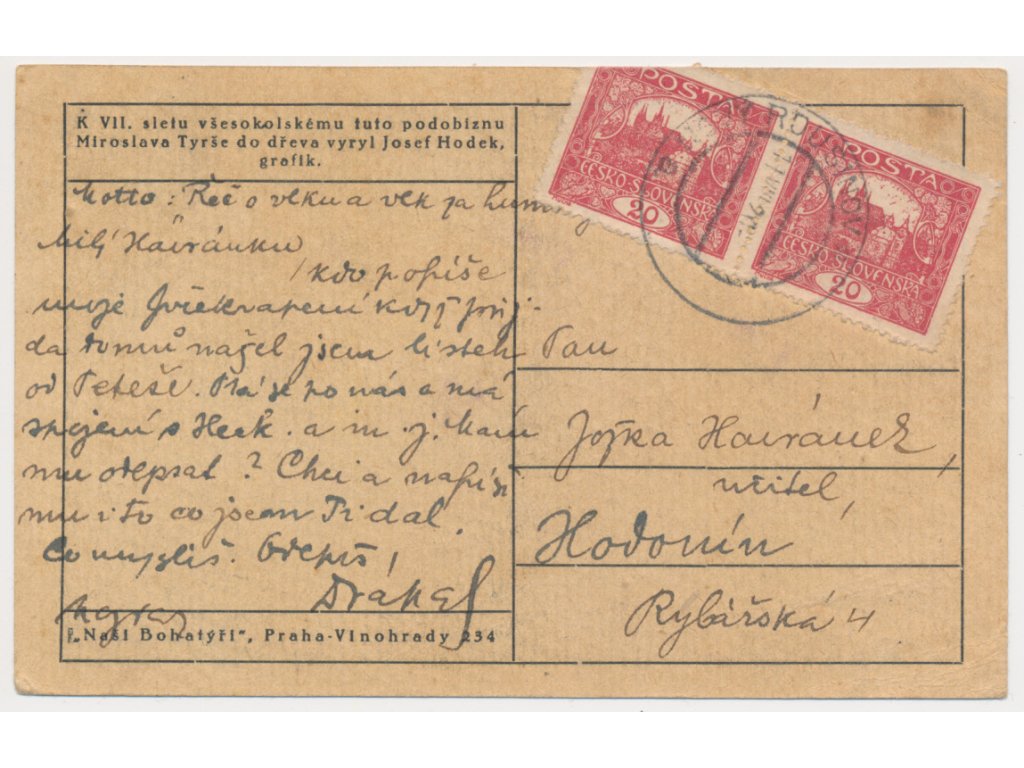 K VII. sletu všesokolskému tuto podobiznu
Miroslava Tyrše do dřeva vyryl Josef Hodek,
grafik.
Motto: Řeč o vlku a vlk za humny
Milý Havránku
kdo popíše
moje překvapení když přij-
da domů našel jsem lístek
od Peteše. Ptá se po nás a má
spojení s Herk. a m. j. Mám
mu odepsat? Chci a napíši
mu i to co jsem Ti dal.
Co myslíš. Odepiš,
"Naši Bohatýři", Praha-Vinohrady 234
POSTA
ČESKO-SLOVENSKÁ
20
POSTA
ČESKO-SLOVENSKÁ
20
Pan
Jožka Havránek,
učitel,
Hodonín
Rybářská 4